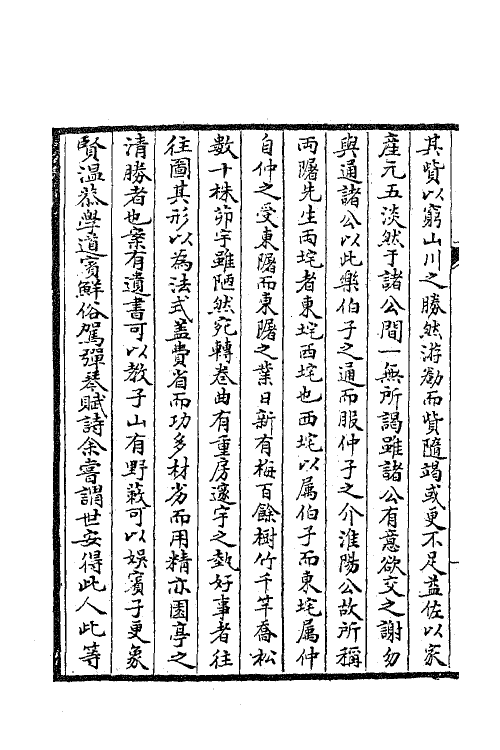 其貲以窮山川之勝然游勌而貲隨竭或更不足益佐以家
産元五淡然于諸公間一無所謁雖諸公有意欲交之謝勿
與通諸公以此樂伯子之通而服仲子之介淮陽公故所稱
兩隝先生兩垞者東垞西垞也西垞以属伯子而東垞属仲
自仲之受東隝而東隝之業日新有梅百餘樹竹千竿喬松
數十株茆宇雖陋然宛轉卷曲有重房邃宇之埶好事者往
往圖其形以為法式盖費省而功多材劣而用精亦園亭之
清勝者也案有遺書可以教子山有野蔌可以娛賓子更象
賢温恭學道賓鮮俗駕彈琴賦詩余嘗謂世安得此人此等